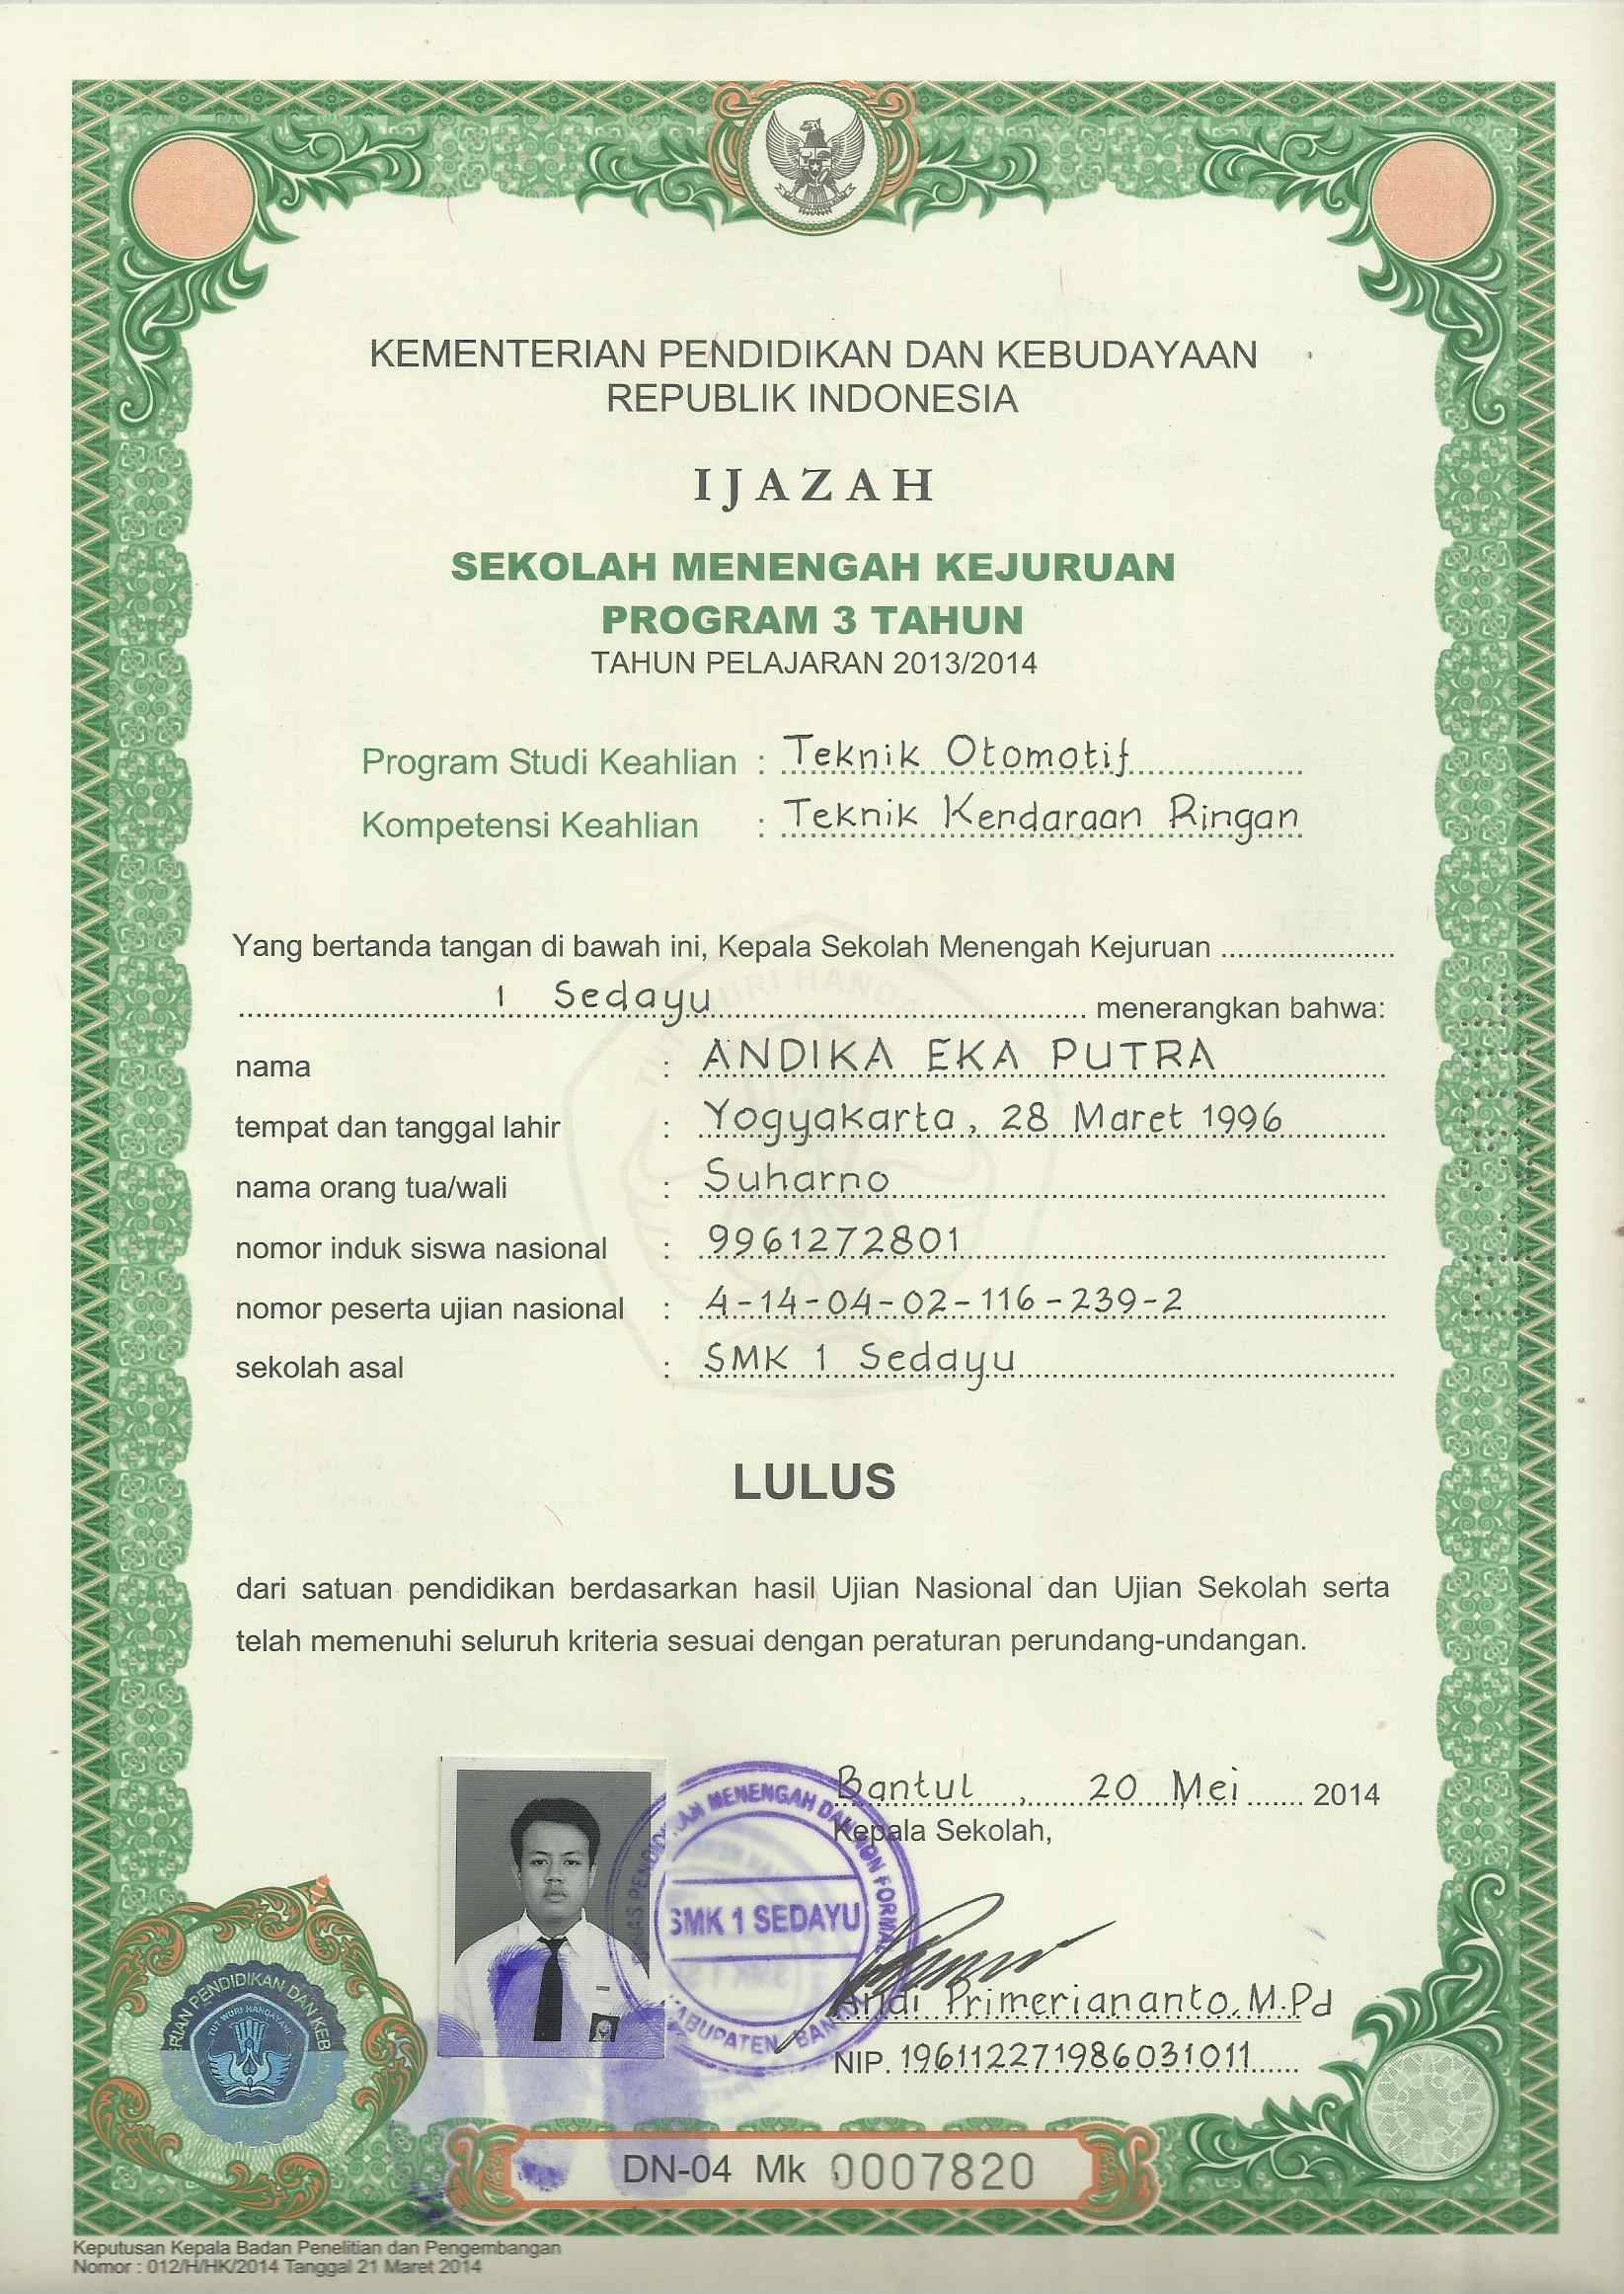 KEMENTERIAN PENDIDIKAN DAN KEBUDAYAAN
REPUBLIK INDONESIA
IJAZAH
SEKOLAH MENENGAH KEJURUAN
PROGRAM 3 TAHUN
TAHUN PELAJARAN 2013/2014
Program Studi Keahlian : Teknik Otomotif
Kompetensi Keahlian : Teknik Kendaraan Ringan
Yang bertanda tangan di bawah ini, Kepala Sekolah Menengah Kejuruan
1 Sedayu menerangkan bahwa:
nama : ANDIKA EKA PUTRA
tempat dan tanggal lahir : Yogyakarta, 28 Maret 1996
nama orang tua/wali : Suharno
nomor induk siswa nasional : 9961272801
nomor peserta ujian nasional : 4-14-04-02-116-239-2
sekolah asal : SMK 1 Sedayu
LULUS
dari satuan pendidikan berdasarkan hasil Ujian Nasional dan Ujian Sekolah serta
telah memenuhi seluruh kriteria sesuai dengan peraturan perundang-undangan.
Bantul, 20 Mei 2014
Kepala Sekolah,
MENENGAH DAN NON FORMAL
SMK 1 SEDAYU
KABUPATEN
Andi Primeriananto, M.Pd
NIP. 196112271986031011
PENDIDIKAN DAN
TUT WURI HANDAYANI
DN-04 Mk 0007820
Keputusan Kepala Badan Penelitian dan Pengembangan
Nomor : 012/H/HK/2014 Tanggal 21 Maret 2014